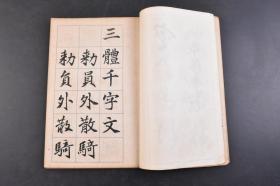 三體千字文
勅員外散騎
勅負外散騎